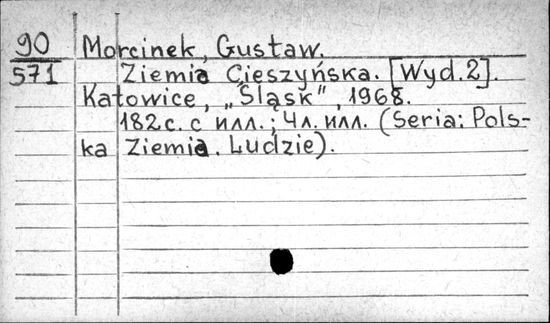 90 Morcinek, Gustaw.
571 Ziemia Cieszyńska. [Wyd.2].
Katowice, „Śląsk”, 1968.
182с. с илл.; 4л. илл. (Seria: Pols-
ka Ziemia. Ludzie).